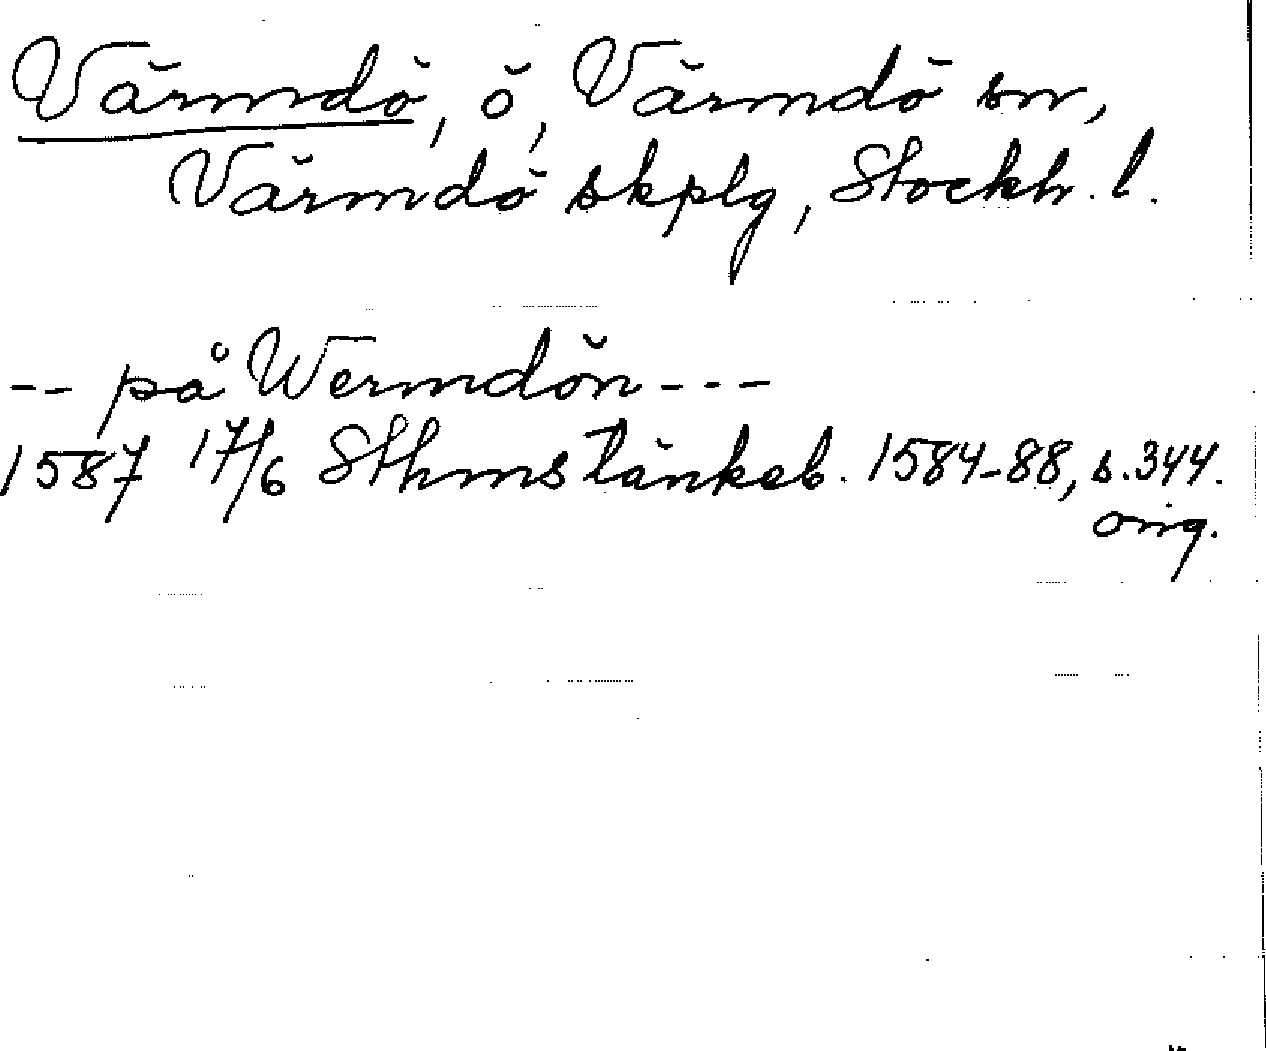 Värmdö, ö, Värmdö sn,
Värmdö skplg, Stockh. l.
-- på Wermdön ---
1587 17/6 Sthms tänkeb. 1584-88, s. 344.
orig.